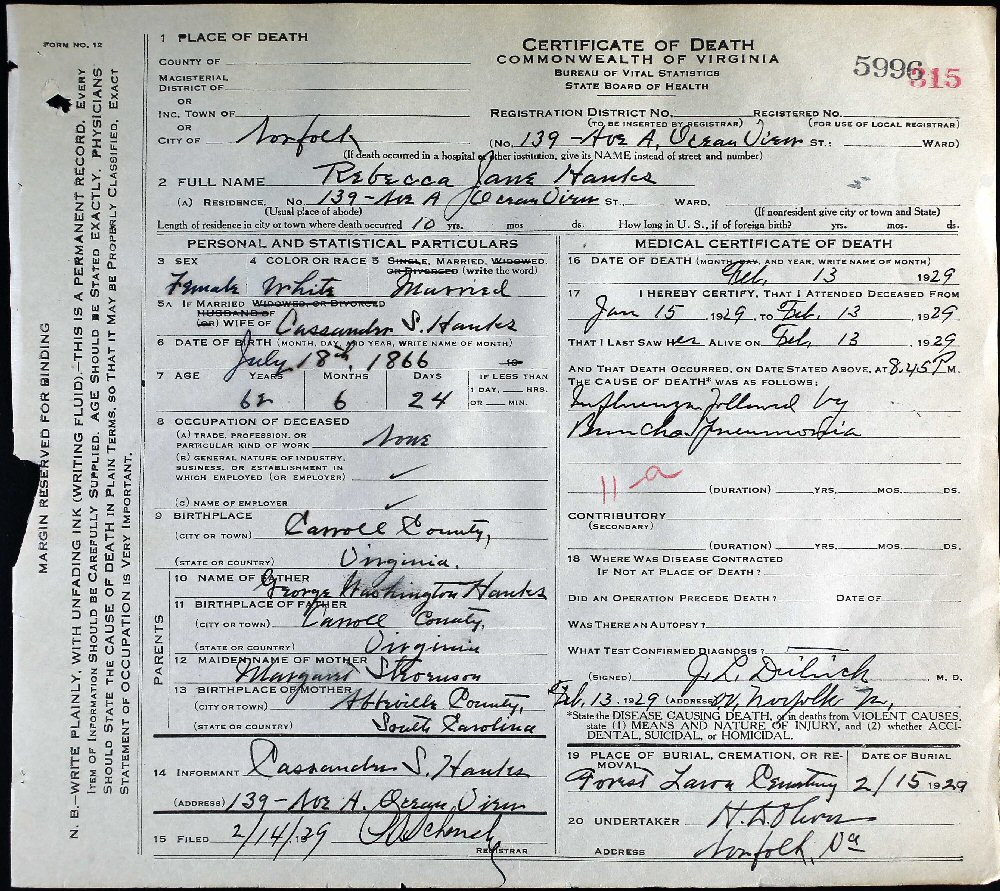 FORM NO. 12
1 PLACE OF DEATH
COUNTY OF
MAGISTERIAL
DISTRICT OF
OR
INC. TOWN OF
OR
CITY OF Norfolk
CERTIFICATE OF DEATH
COMMONWEALTH OF VIRGINIA
BUREAU OF VITAL STATISTICS
STATE BOARD OF HEALTH
5996 315
REGISTRATION DISTRICT NO. REGISTERED NO.
(TO BE INSERTED BY REGISTRAR) (FOR USE OF LOCAL REGISTRAR)
(No. 139 - Ave A, Ocean View ST.: WARD)
(If death occurred in a hospital or other institution, give its NAME instead of street and number)
2 FULL NAME Rebecca Jane Hanks
(A) RESIDENCE. No. 139 - Ave A Ocean View ST., WARD.
(Usual place of abode) (If nonresident give city or town and State)
Length of residence in city or town where death occurred 10 yrs. mos ds. How long in U. S., if of foreign birth? yrs. mos. ds.
PERSONAL AND STATISTICAL PARTICULARS
3 SEX 4 COLOR OR RACE 5 SINGLE, MARRIED, WIDOWED,
OR DIVORCED (write the word)
Female White Married
5A IF MARRIED WIDOWED, OR DIVORCED
HUSBAND OF
(OR) WIFE OF Cassander S. Hanks
6 DATE OF BIRTH (MONTH, DAY, AND YEAR, WRITE NAME OF MONTH)
July 18th, 1866 19
7 AGE YEARS MONTHS DAYS IF LESS THAN
1 DAY, HRS.
OR MIN.
62 6 24
8 OCCUPATION OF DECEASED
(A) TRADE, PROFESSION, OR
PARTICULAR KIND OF WORK None
(B) GENERAL NATURE OF INDUSTRY,
BUSINESS, OR ESTABLISHMENT IN
WHICH EMPLOYED (OR EMPLOYER) ✓
(C) NAME OF EMPLOYER ✓
9 BIRTHPLACE
(CITY OR TOWN) Carroll County,
(STATE OR COUNTRY) Virginia.
PARENTS
10 NAME OF FATHER George Washington Hanks
11 BIRTHPLACE OF FATHER
(CITY OR TOWN) Carroll County,
(STATE OR COUNTRY) Virginia
12 MAIDEN NAME OF MOTHER
Margaret
13 BIRTHPLACE OF MOTHER
(CITY OR TOWN) Abbeville County,
(STATE OR COUNTRY) South Carolina
14 INFORMANT Cassander S. Hanks
(ADDRESS) 139 - Ave A. Ocean View
15 FILED 2/14/29 Schenck
REGISTRAR
MEDICAL CERTIFICATE OF DEATH
16 DATE OF DEATH (MONTH, DAY, AND YEAR, WRITE NAME OF MONTH)
Feb, 13 1929
17 I HEREBY CERTIFY, THAT I ATTENDED DECEASED FROM
Jan 15 1929, TO Feb, 13, 1929
THAT I LAST SAW Her ALIVE ON Feb, 13, 1929
AND THAT DEATH OCCURRED, ON DATE STATED ABOVE, AT 8.45 P M.
THE CAUSE OF DEATH* WAS AS FOLLOWS:
Influenza followed by
Broncho Pneumonia
11-a
(DURATION) YRS. MOS. DS.
CONTRIBUTORY
(SECONDARY)
(DURATION) YRS. MOS. DS.
18 WHERE WAS DISEASE CONTRACTED
IF NOT AT PLACE OF DEATH?
DID AN OPERATION PRECEDE DEATH? DATE OF
WAS THERE AN AUTOPSY?
WHAT TEST CONFIRMED DIAGNOSIS?
(SIGNED) J. L. M. D.
Feb, 13, 1929 (ADDRESS) Norfolk
*State the DISEASE CAUSING DEATH, or in deaths from VIOLENT CAUSES,
state (1) MEANS AND NATURE OF INJURY, and (2) whether ACCI-
DENTAL, SUICIDAL, or HOMICIDAL.
19 PLACE OF BURIAL, CREMATION, OR RE- DATE OF BURIAL
MOVAL
Forest Lawn Cemetery 2/15 1929
20 UNDERTAKER H. D. Oliver
ADDRESS Norfolk, Va
MARGIN RESERVED FOR BINDING
N. B.—WRITE PLAINLY, WITH UNFADING INK (WRITING FLUID).—THIS IS A PERMANENT RECORD. EVERY
ITEM OF INFORMATION SHOULD BE CAREFULLY SUPPLIED. AGE SHOULD BE STATED EXACTLY. PHYSICIANS
SHOULD STATE THE CAUSE OF DEATH IN PLAIN TERMS, SO THAT IT MAY BE PROPERLY CLASSIFIED. EXACT
STATEMENT OF OCCUPATION IS VERY IMPORTANT.